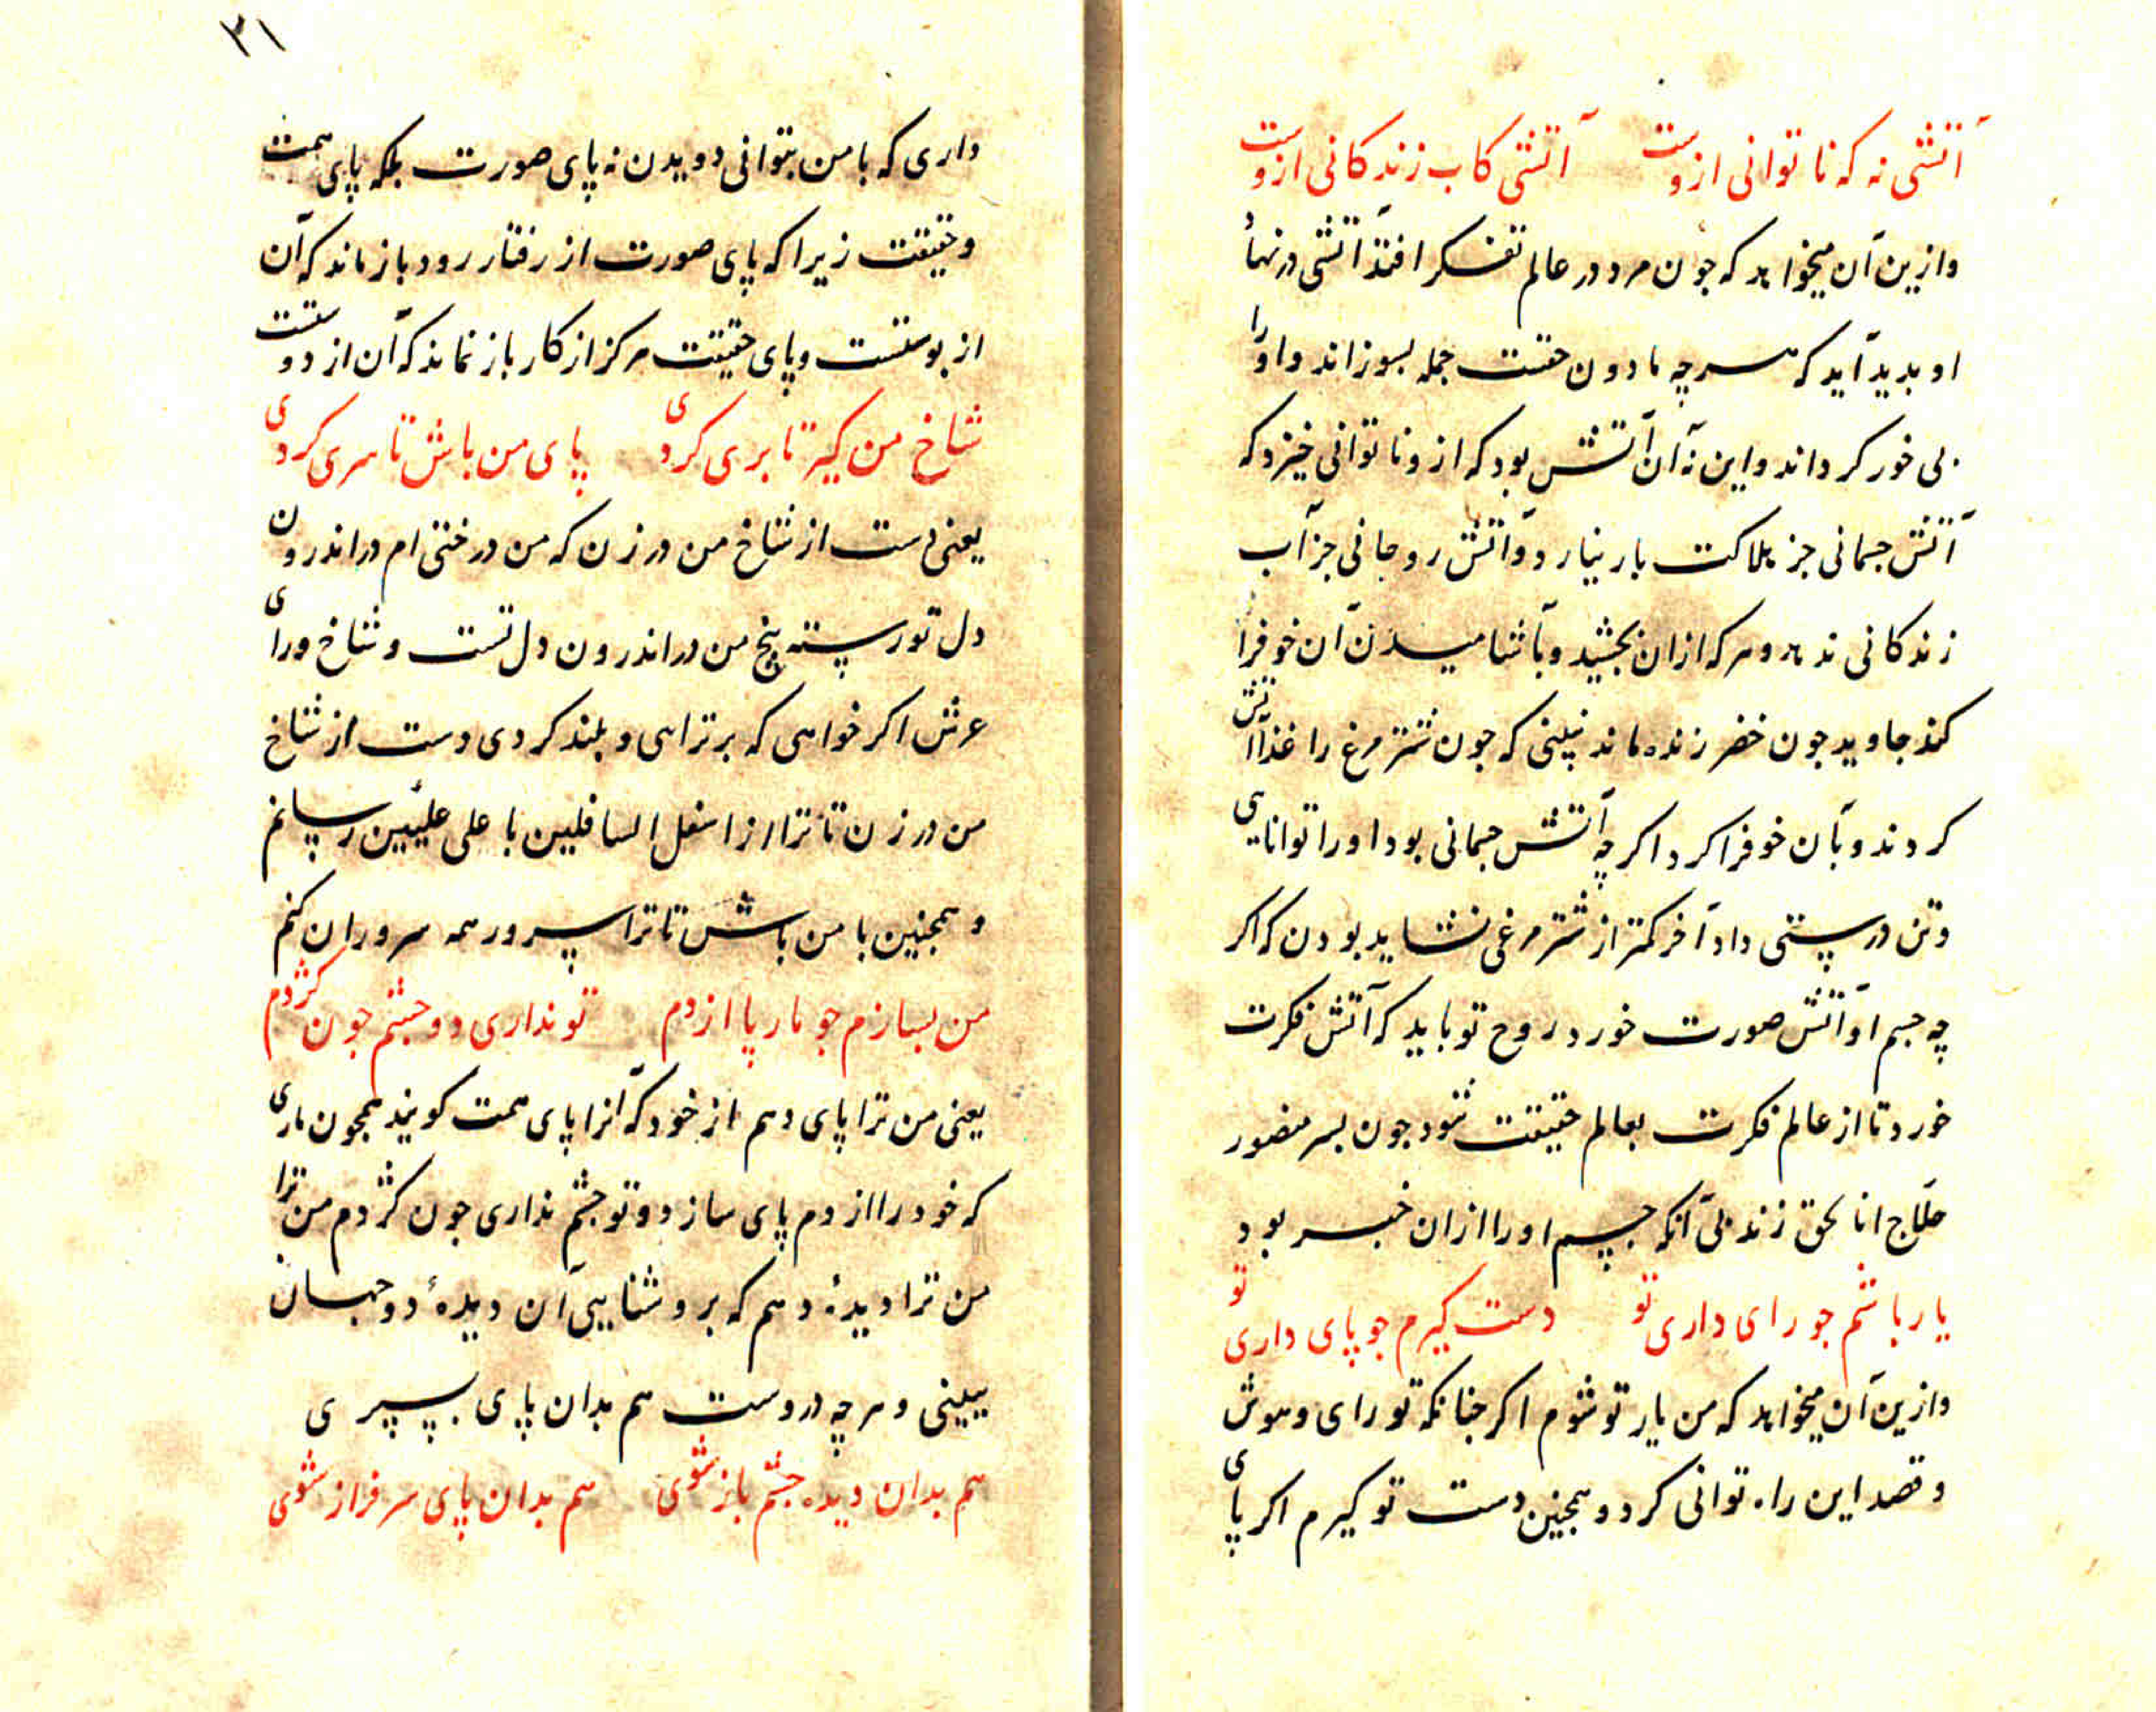 آتشی نه که ناتوانی ازوست آتشی کاب زندکانی ازوست
وازین آن میخواهد که جون مرد در عالم تفکر افتد آتشی در نهاد
او بدید آید که هرچه مادون حقست جمله بسوزاند و او را
بی خور کرداند و این نه آن آتش بود که ازو ناتوانی خیزد که
آتش جسمانی جز هلاکت بار نیارد و آتش روحانی جز آب
زندکانی ندهد و هر که ازان بجشید و بآشامیدن آن خو فرا
کند جاوید جون خضر زنده ماند نبینی که جون شتر مرغ را غذا آتش
کردند و بآن خو فرا کرد اکر چه آتش جسمانی بود او را توانایی
و تن درستی داد آخر کمتر از شتر مرغی نشاید بودن که اکر
چه جسم او آتش صورت خورد روح تو باید که آتش فکرت
خورد تا از عالم فکرت بعالم حقیقت شود جون بسر منصور
حلاج انا لحق زند بی آنکه جسم او را ازان خبر بود
یار باشم جو رای داری تو دست کیرم جو پای داری تو
وازین آن میخواهد که من یار تو شوم اکر جنانکه تو رای و هوش
و قصد این راه توانی کرد و همجنین دست تو کیرم اکر پای
۳۱
داری که با من بتوانی دویدن نه پای صورت بلکه پای همت
و حقیقت زیرا که پای صورت از رفتار رود باز ماند که آن
از پوستست و پای حقیقت هرکز از کار باز نماند که آن از دوستست
شاخ من کیر تا بری کردی پای من باش تا سری کردی
یعنی دست از شاخ من در زن که من درختی ام در اندرون
دل تو رسته بیخ من در اندرون دل تست و شاخ ورای
عرش اکر خواهی که برتر اهی و بلند کردی دست از شاخ
من در زن تا ترا از اسفل السافلین با علی علیین رسانم
و همجنین با من باش تا ترا سرور همه سروران کنم
من بسازم جو مار پا از دم تو نداری دو جشم جون کژدم
یعنی من ترا پای دهم از خود که آنرا پای همت کویند همجون ماری
که خود را از دم پای سازد و تو جشم نداری جون کژدم من ترا
من ترا دیدهٔ دهم که بروشنایی آن دیدهٔ دو جهان
ببینی و هر چه دروست هم بدان پای بسپری
هم بدان دیده جشم باز شوی هم بدان پای سرفراز شوی